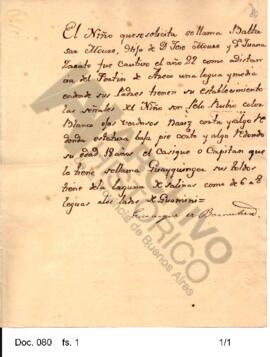 El Niño que se solicita se llama Balta
sar Mouro, Hijo de D. Jose Mouro y Dª Juana
Zarate fue cautivo el año 22 como a distan
cia del Fortin de Areco una legua y media
en donde sus Padres tienen su establecimiento
las señales del Niño son Pelo Rubio color
Blanco ojos verdosos Nariz corta y algo Re
donda estatura baja pie corto y algo Redondo
su edad 12 años el Casique o Capitan que
lo tiene se llama Guayquingea sus toldos
tiene de la laguna de Salinas como de 6 a 8
leguas a los lados de Guamini=
ARCHIVO
HISTÓRICO
Provincia de Buenos Aires
Doc. 080 fs. 1 1/1